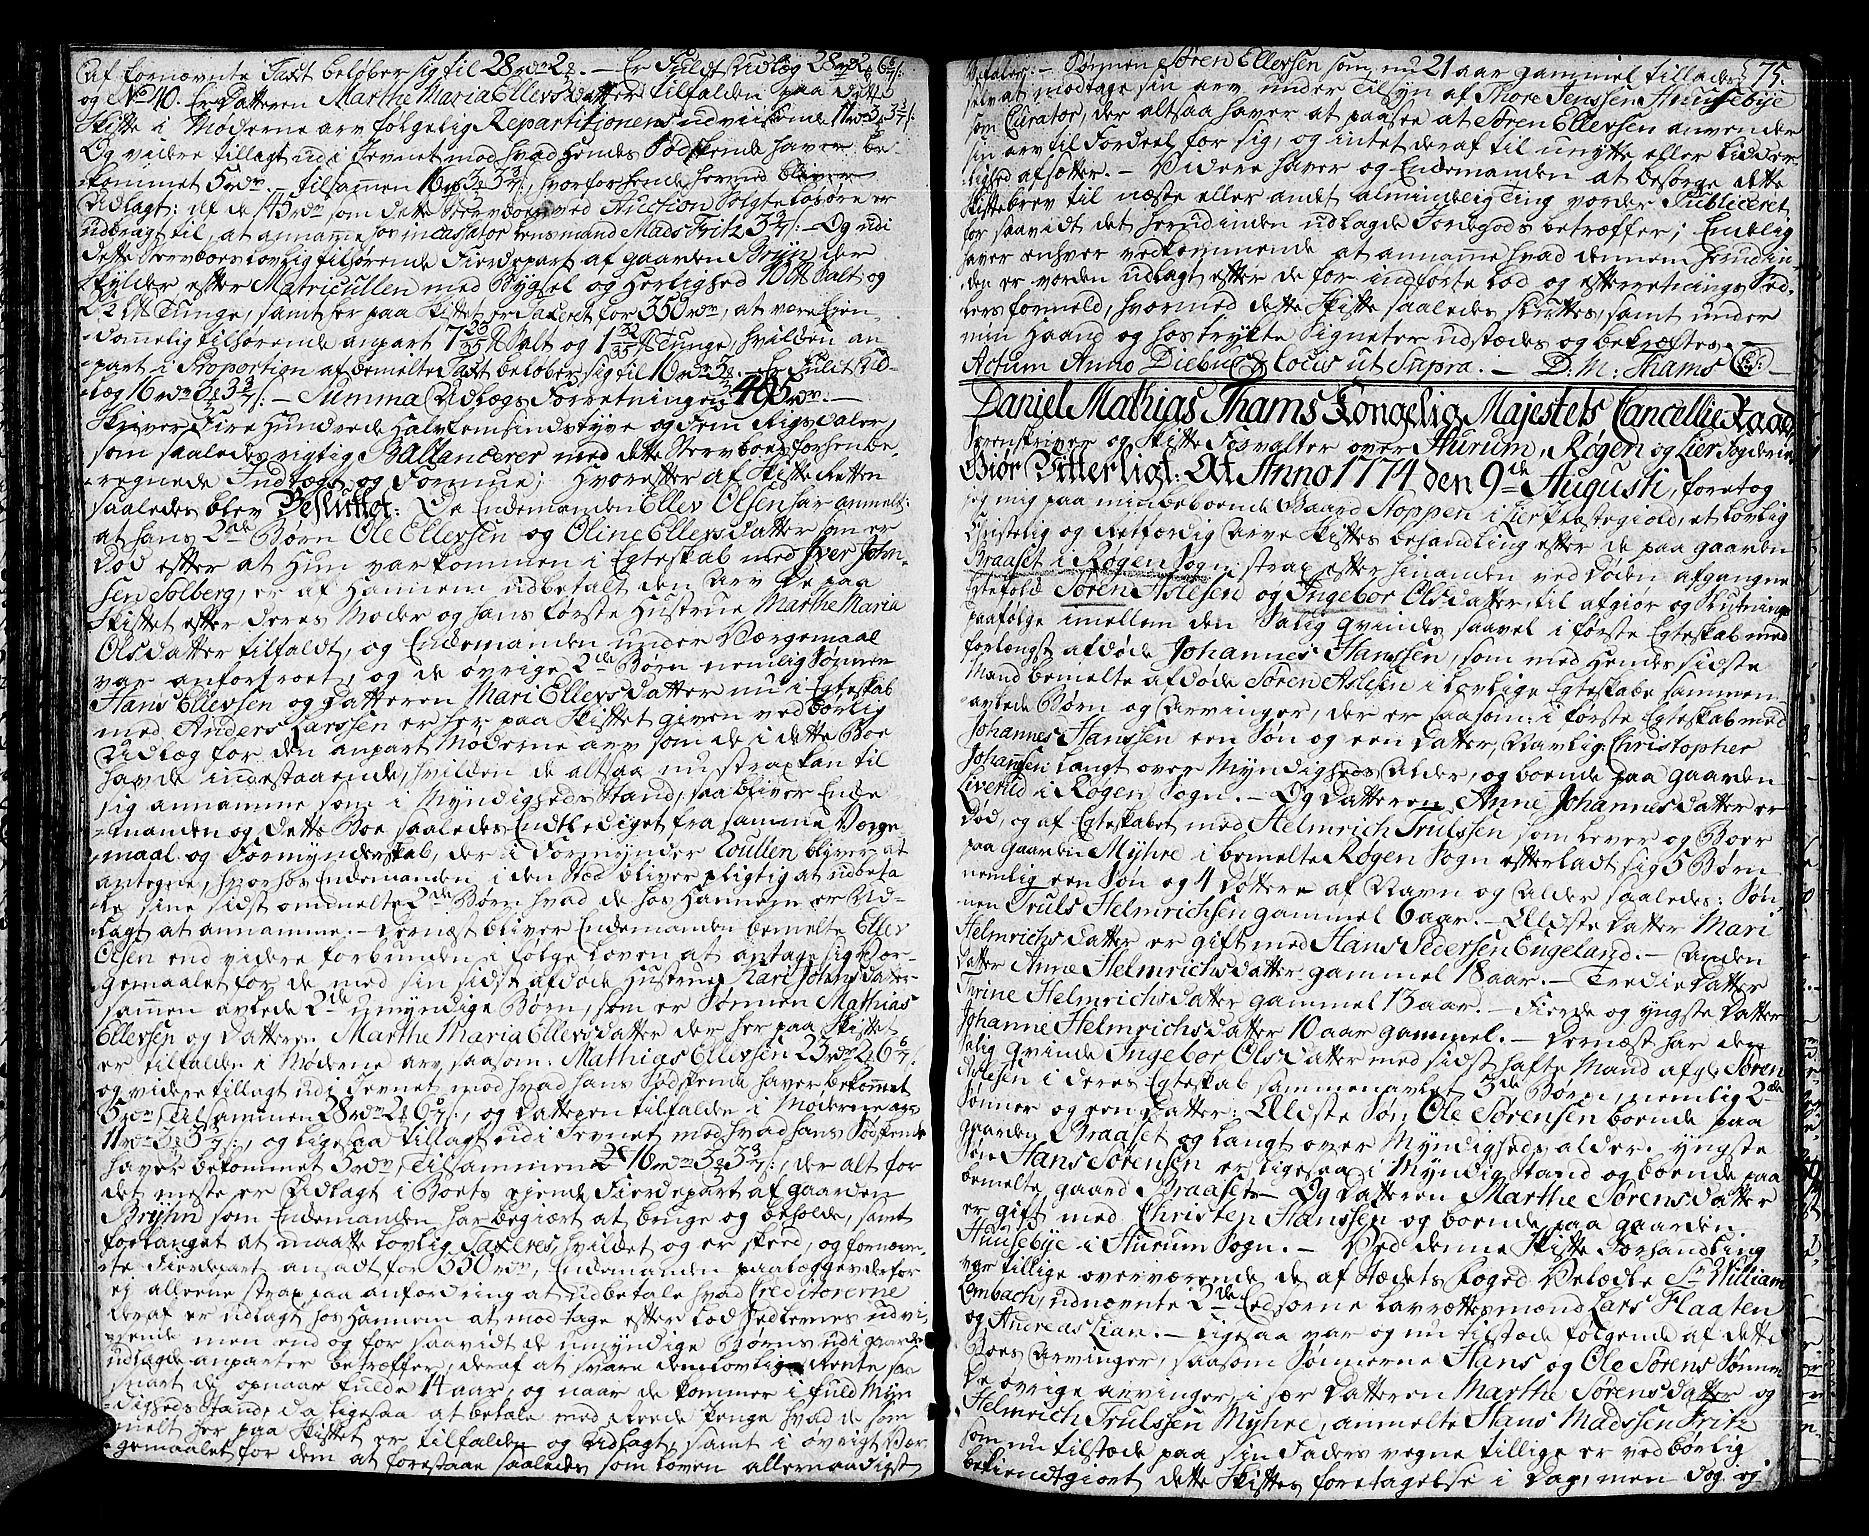 af fornævnte Taxt beløber sig til 28 rdr 2. — Er Fuldt Udlæg 28 rdr 2
og No 40. Er Datteren Marthe Maria Ellevsdatter tilfalden paa dette
Skifte i Møderne arv følgelig Repartitionens udviisende 11 rdr 3
Og videre tillagt ud i Jevnet mod hvad Hendes Sødskende haver be-
kommet 5 rdr. tilsamen 16 rdr 3, hvorfor hende herved bliver
Udlagt: af de 145 rdr som dette Sterboes ved Auction Solgte Løsøre er
uddragt til, at annamme hos incassator Lensmand Mads Fritz 3. — Og udi
dette Sterboes Lovlig tilhørende Fierdepart af gaarden Bryn der
skylder efter Matriculen med Bygsel og Herlighed 10 lb Salt og
Tunge, samt er paa Skiftet er Taxeret for 350 rdr, at være Eien-
domelig tilhørende anpart 7 Salt og 1 Tunge, hvilken an-
part i Proportion af bemelte Taxt beløber sig til 16 rdr 3. Er Fuldt Ud-
læg 16 rdr 3. — Summa Udlægs Forretningen 495 rdr. —
Skriver Fire Hundrede Halvfemsindstyve og Fem Rigsdaler,
som saaledes rigtig Ballancerer med dette Sterboes forhen be-
regnede Indtægt og Formue; Hvorefter af Skifte Retten
saaledes blev Besluttet: Da Enkemanden Ellev Olsen har anmeldt
at hans 2de Børn Ole Ellevsen og Oline Ellevsdatter som er
Død efter at Hun var kommen i Egteskab med Iver John-
sen Solberg, er af Hannem udbetalt den Arv De paa
Skiftet efter deres Moder og hans første Hustrue Marthe Maria
Olsdatter tilfaldt, og Enkemanden under Værgemaal
var anfortroet, og de øvrige 2de Børn nemlig Sønnen
Hans Ellevsen og Datteren Mari Ellevsdatter nu i Egteskab
med Anders Larssen er her paa Skiftet given ved børlig
Udlæg for den anpart Møderne arv som de i dette Boe
havde indestaaende, hvilken de altsaa nu strax kan til
sig annamme som i Myndigheds Stand, saa bliver Enke-
manden og dette Boe saaledes Entlediget fra samme Værge-
maal og Formynderskab, der i Formynder Rullen bliver at
antegne, hvorhos Enkemanden i den Sted bliver pligtig at udbeta-
le sine sidst ommelte 2de Børn hvad de hos Hannem er Ud-
lagt at annamme. — Dernæst bliver Enkemanden bemelte Ellev
Olsen end videre forbunden i følge Loven at antage sig Vær-
gemaalet for de med sin sidst afdøde Hustrue Kari Johansdatter
sammen avlede 2de umyndige Børn, som er Sønnen Mathias
Ellevsen og Datteren Marthe Maria Ellevsdatter der her paa Skiftet
er tilfalden i Møderne arv saasom: Mathias Ellevsen 23 rdr 2
og videre tillagt udi Jevnet mod hvad hans Sødskende haver bekommet
5 rdr Tilsammen 28 rdr 2, og Datteren tilfalden i Møderne arv
11 rdr 3, og ligesaa tillagt udi Jevnet mod hvad hans Sødskende
haver bekommet 5 rdr, tilsammen 16 rdr 3, der alt for
det meste er Udlagt i Boets eiende Fierdepart af gaarden
Bryhn som Enkemanden har begiært at bruge og beholde, samt
forlanget at maatte Lovlig Taxeres, hvilket og er skeed, og fornævn-
te Fierdepart ansadt for 350 rdr, Enkemanden paalegges derfor
ej alleene strax paa anfordring at udbetale hvad Creditorerne
deraf er udlagt hos Hannem at modtage efter Lod Sedlernes udvi-
sende men end og for saavidt de umyndige Børns udi gaarden
udlagde anparter betræffer, deraf at svare dem Lovlig Rente saa
snart de opnaar fulde 14 aar, og naar de kommer i fuld Myn-
digheds Stand, da ligesaa at betale med Reede Penge hvad de som
melt her paa Skiftet er tilfalden og Udlagt, samt i øvrigt Vær-
gemaalet for dem at forestaae saaledes som Loven allernaadigst
befaler. — Sønnen Søren Ellevsen som nu 21 aar gammel tillades 75.
selv at modtage sin arv under Tilsyn af Thore Jenssen Huusebye
som Curator, der altsaa haver at paasee at Søren Ellevsen anvender
sin arv til Fordeel for sig, og intet deraf til unytte eller Lidder-
lighed afsætter. — Videre haver og Enkemanden at besørge dette
Skiftebrev til næste eller andet almindelig Ting vorder Publiceret,
for saavidt det herudinden udlagde Jordegods betræffer; Endelig
haver enhver vedkommende at annamme hvad dennem herudin-
den er vorden udlagt efter de for indførte Lod og efterretnings Sed-
lers formeld, hvormed dette Skifte saaledes sluttes, samt under
min Haand og hostrykte Signeter udstædes og bekræftes. —
Actum Anno Diebus & locis ut Supra. — D: M: Thams (L:S:)
Daniel Mathias Thams Kongelig Majestets Cancellie Raad,
Sorenskriver og Skifte Forvalter over Hurum, Røgen og Lier Fogderie
Giør Vitterligt: At Anno 1774 den 9de Augusti, foretog
jeg mig paa min beboende Gaard Stoppen i Lier Præstegield, et Lovlig
Christelig og Retfærdig Arve Skiftes behandling efter de paa gaarden
Braaset i Røgen Sogn strax efter hinanden ved Døden afgangne
Egtefolk Søren Aslesen og Ingebor Olsdatter, til afgiør og Slutning
paafølge imellem den Salig Qvindes saavel i første Egteskab med
forlengst afdøde Johannes Hanssen, som med Hendes sidste
Mand bemelte afdøde Søren Aslesen i Lovlige Egteskabe sammen
avlede Børn og Arvinger, der er saasom: i første Egteskab med
Johannes Hanssen een Søn og een Datter, Navnlig Christopher
Johansen langt over Myndigheds Alder, og boende paa gaarden
Liverud i Røgen Sogn. — Og Datteren Anne Johannesdatter er
død, og af Egteskabet med Helmrich Trulssen som lever og Boer
paa gaarden Myhre i bemelte Røgen Sogn efterladt sig 5 Børn
nemlig een Søn og 4 Døttre af Navn og Alder saaledes: Søn-
nen Truls Helmrichsen gammel 6 aar. — Ældste Datter Mari
Helmrichsdatter er gift med Hans Pedersen Engeland. — Anden
Datter Anne Helmrichsdatter gammel 18 aar. — Tredie Datter
Thrine Helmrichsdatter gammel 13 aar. — Fierde og yngste Datter
Johanne Helmrichsdatter 10 aar gammel. — Dernæst har den
salig Qvinde Ingebor Olsdatter med sidst hafte Mand afg: Søren
Aslesen i deres Egteskab sammenavlet 3de Børn, nemlig 2de
Sønner og een Datter: Ældste Søn Ole Sørensen boende paa
gaarden Braaset og langt over Myndigheds alder. yngste
Søn Hans Sørensen er ligesaa i Myndig Stand og boende paa
bemelte gaard Braaset — Og Datteren Marthe Sørensdatter
er gift med Christen Hanssen og boende paa gaarden
Huusebye i Hurum Sogn. — Ved denne Skifte Forhandling
var tillige overværende de af Stædets Foged Velædle Sr William
Lembach, udnævnte 2de Eedsorne Lavrettesmænd Lars Flaaten
og Andreas Lian. — Ligesaa var og nu tilstæde følgende af dette
Boes Arvinger, saasom Sønnerne Hans og Ole Sørens Sønner
De øvrige arvinger, i sær Datteren Marthe Sørensdatter og
Helmrich Trulssen Myhre, anmelte Hans Madssen Fritz
som nu tilstæde paa sin Faders vegne tillige er ved børlig
bekiendtgiort dette Skiftes foretagelse i Dag, men dog ej